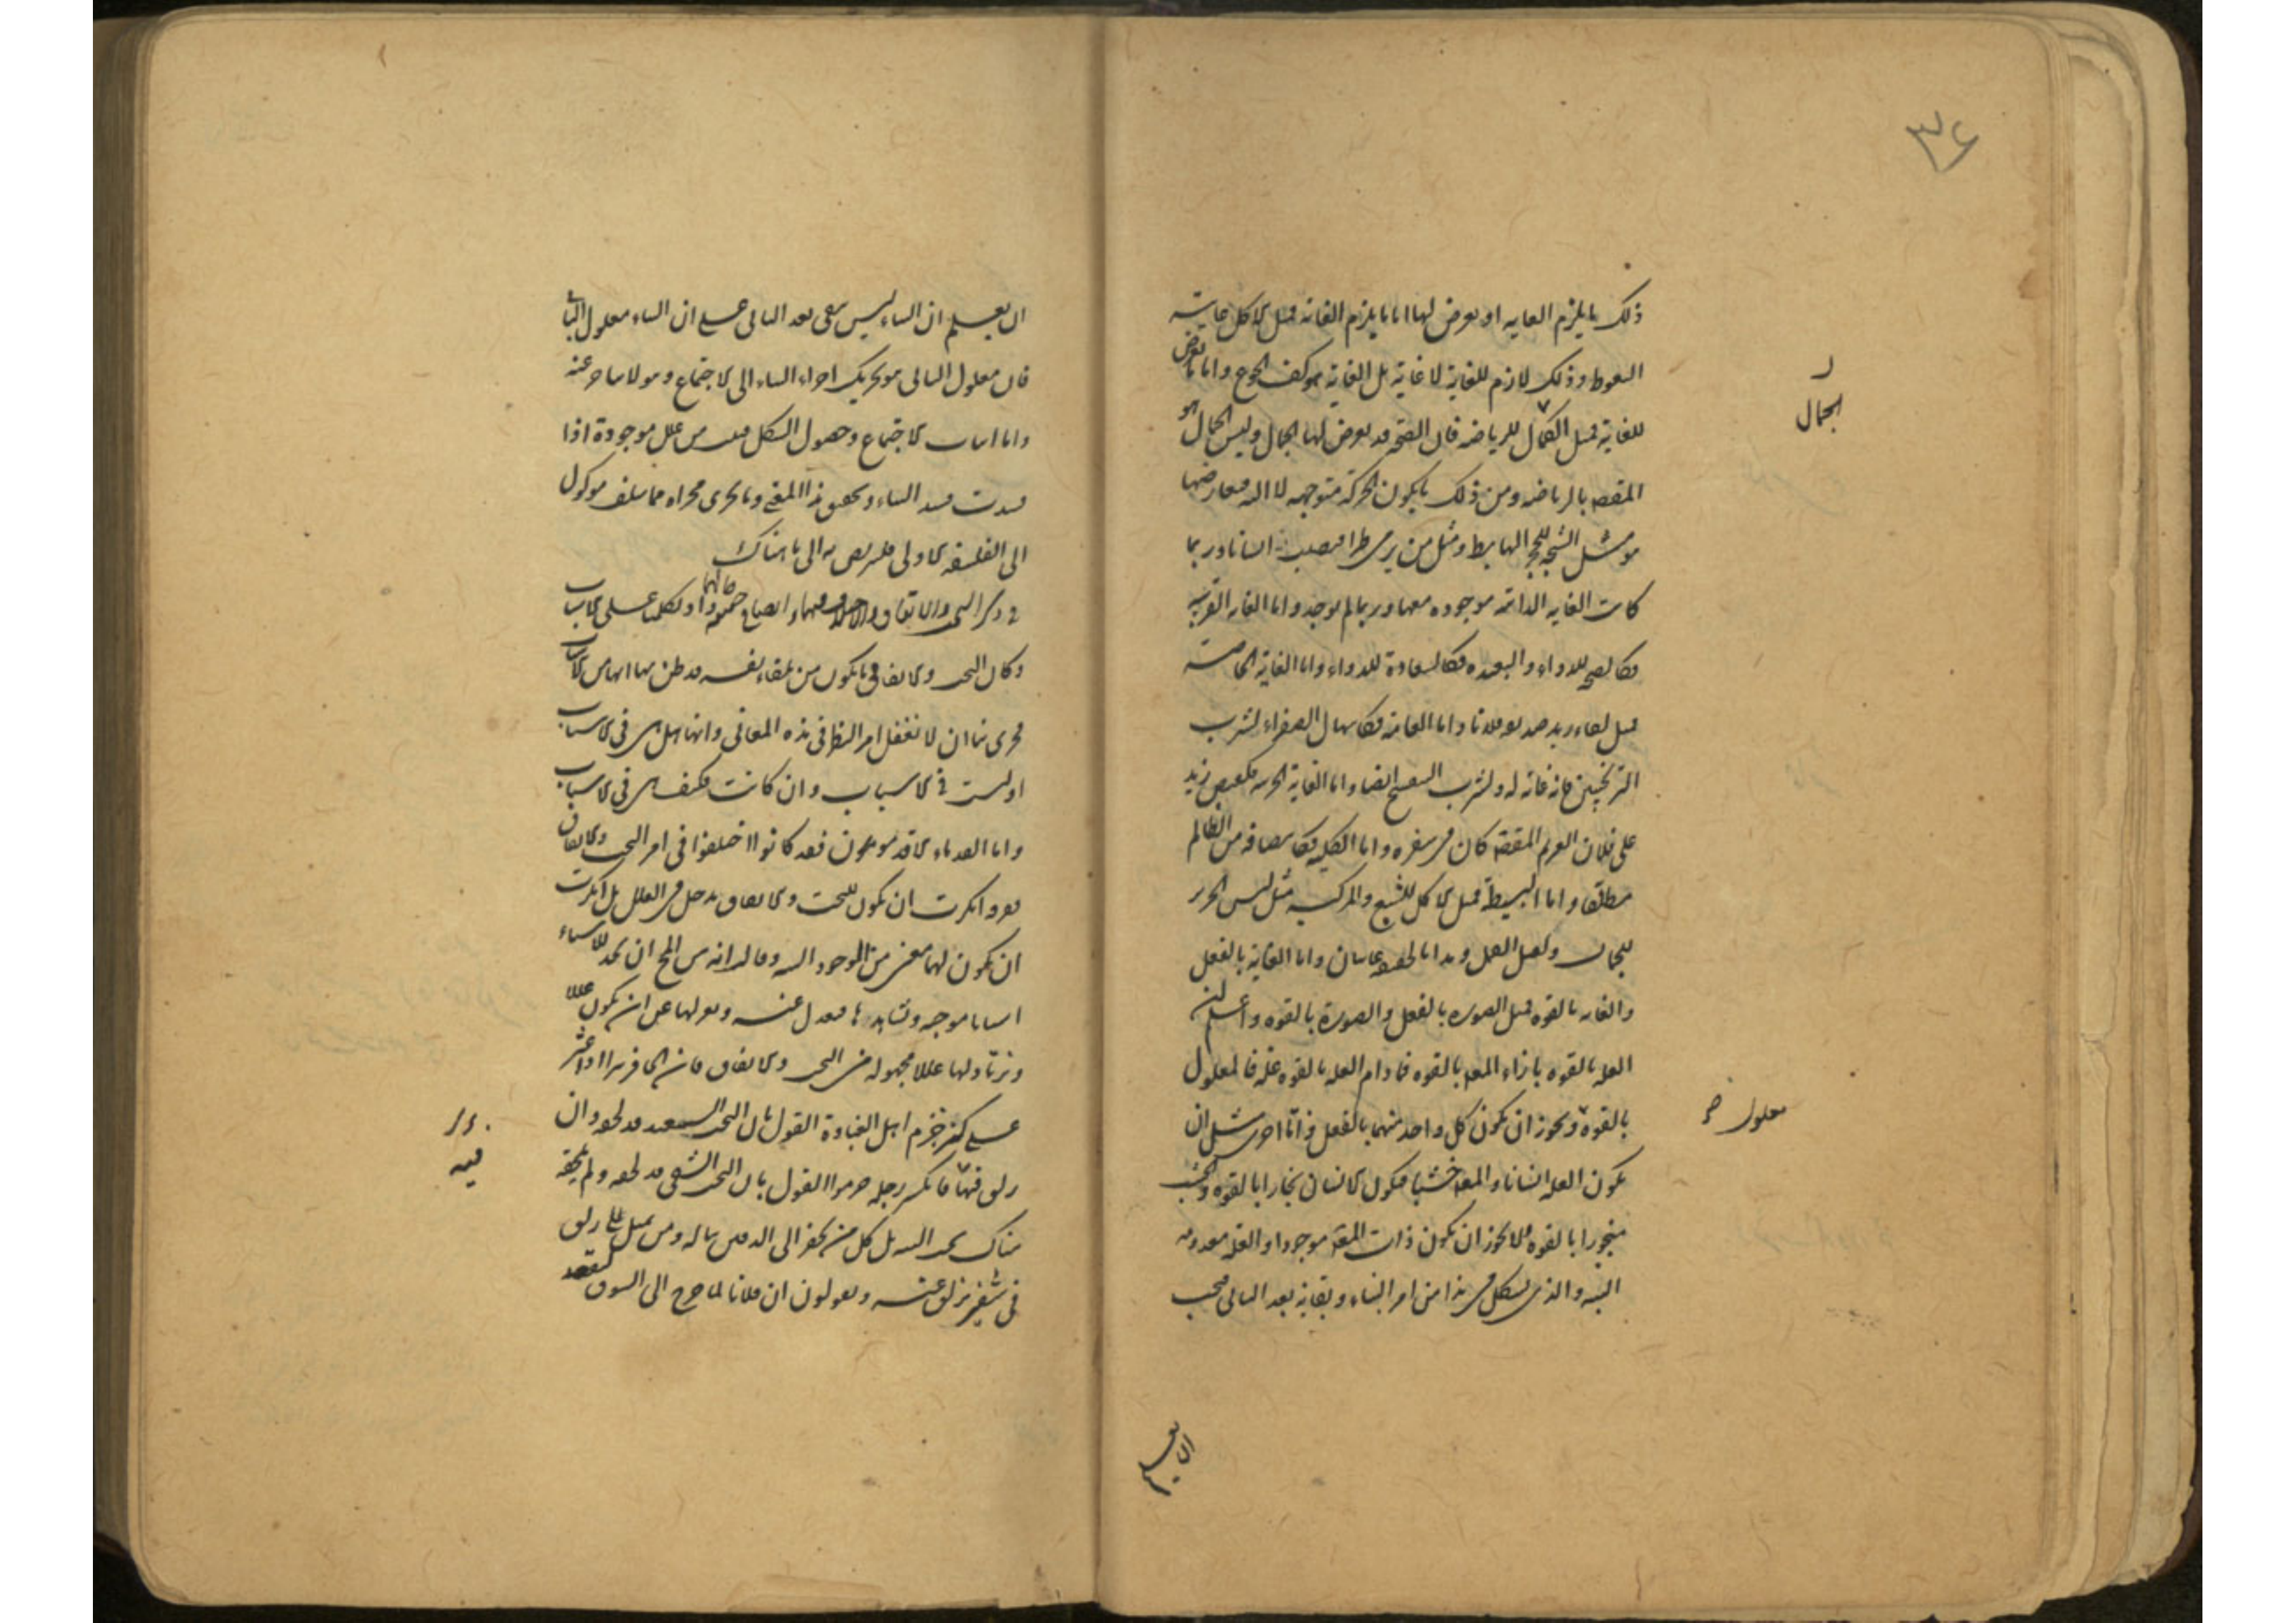 ٣٤
ذلك ما يلزم الغاية او يعرض لها اما ما يلزم الغاية فمثل الاكل غايته
التغوط وذلك لازم للغاية لا غاية بل الغاية هو كف الجوع واما ما يعرض
للغاية فمثل الجمال للرياضه فان الصحة قد يعرض لها الجمال وليس الجمال هو
الجمال
المقصود بالرياضه ومن ذلك ما يكون الحركة متوجهه لا اليه فيعارضها
هو مثل الشجة للحجر الهابط ومثل من يرمي طيرا فيصيب انسانا وربما
كانت الغاية الذاتية موجوده معها وربما لم يوجد واما الغاية القريبة
فكالصحة للدواء والبعيده فكالسعادة للدواء واما الغاية الخاصة
فمثل لقاء زيد صديقه فلانا واما العامة فكاسهال الصفراء لشرب
الترنجبين فانه غاية له ولشرب البنفسج ايضا واما الغاية الجزئية فكقبض زيد
على فلان الغريم المقصود كان في سفره واما الكلية فكانتصافه من الظالم
مطلقا واما البسيطة فمثل الاكل للشبع والمركبه مثل لبس الحرير
للجمال ولقتل القمل وهذا بالحقيقة غايتان واما الغاية بالفعل
والغاية بالقوه فمثل الصوره بالفعل والصورة بالقوه واعلم ان
العلة بالقوه بازاء المعلول بالقوه فما دام العلة بالقوه علة فالمعلول
معلول
بالقوة ويجوز ان يكون كل واحد منهما بالفعل ذاتا اخرى مثل ان
يكون العلة انسانا والمعلول خشبا فيكون الانسان نجارا بالقوه والخشب
منجورا بالقوه فلا يجوز ان يكون ذات المعلول موجودا والعلة معدومه
البته والذي يشكل في هذا من امر البناء وبقائه بعد الباني فيجب
ان يعلم ان البناء ليس يبقى بعد الباني على ان البناء معلول الباني
فان معلول الباني هو تحريك اجزاء البناء الى الاجتماع وهو لا يتاخر عنه
واما ثبات الاجتماع وحصول الشكل فيثبت من علل موجودة اذا
فسدت فسد البناء وتحقيق هذا المعنى وما يجري مجراه مما سلف موكول
الى الفلسفه الاولى فليتربص به الى ما هناك
في ذكر البخت والاتفاق والاختلاف فيهما وايضاح حقيقة حالهما واذ تكلمنا على الاسباب
وكان البخت والاتفاق وما يكون من تلقاء نفسه قد ظن بها انها من الاسباب
فحري بنا ان لا نغفل امر النظر في هذه المعاني وانها هل هي في الاسباب
او ليست في الاسباب وان كانت فكيف هي في الاسباب
واما القدماء الاقدمون فقد كانوا اختلفوا في امر البخت والاتفاق
ففرقة انكرت ان يكون للبخت والاتفاق مدخل في العلل بل انكرت
ان يكون لهما معنى في الوجود البته وقالت انه من المحال ان نجد للاشياء
اسبابا موجبه ونشاهدها فنعدل عنه ونعزلها عن ان يكون عللا
ونرتاد لها عللا مجهوله من البخت والاتفاق فان الحافر بئرا اذا عثر
على كنز جزم اهل الغباوة القول بان البخت السعيد قد لحقه وان
زلق فيها فانكسر رجله جزموا القول بان البخت الشقي قد لحقه ولم يلحقه
فيه
هناك بخت البته بل كل من يحفر الى الدفين يناله ومن يميل على زلق
في شفير يزلق عنه ويقولون ان فلانا لما خرج الى السوق ليقعد